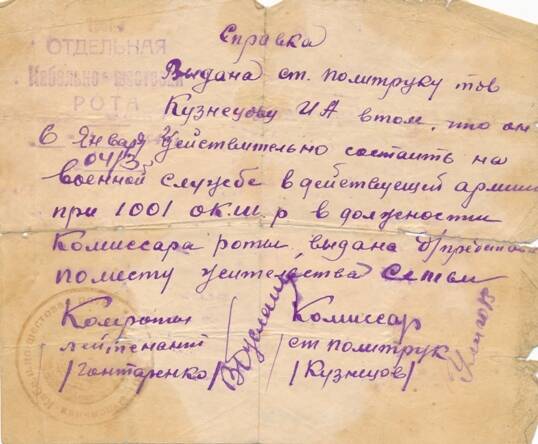 Справка
ОТДЕЛЬНАЯ
Кабельно-шестовая
РОТА
Выдана ст. политруку тов
Кузнецову ИА в том, что он
6 Января
04/3
действительно состаить на
военной службе в действующей армии
при 1001 ОКШР в должности
Комиссара роты, выдана д/предъявл
поместу жительства Семьи
Комроты
лейтенант
/Гонтаренко/
Комиссар
ст политрук
/Кузнецов/